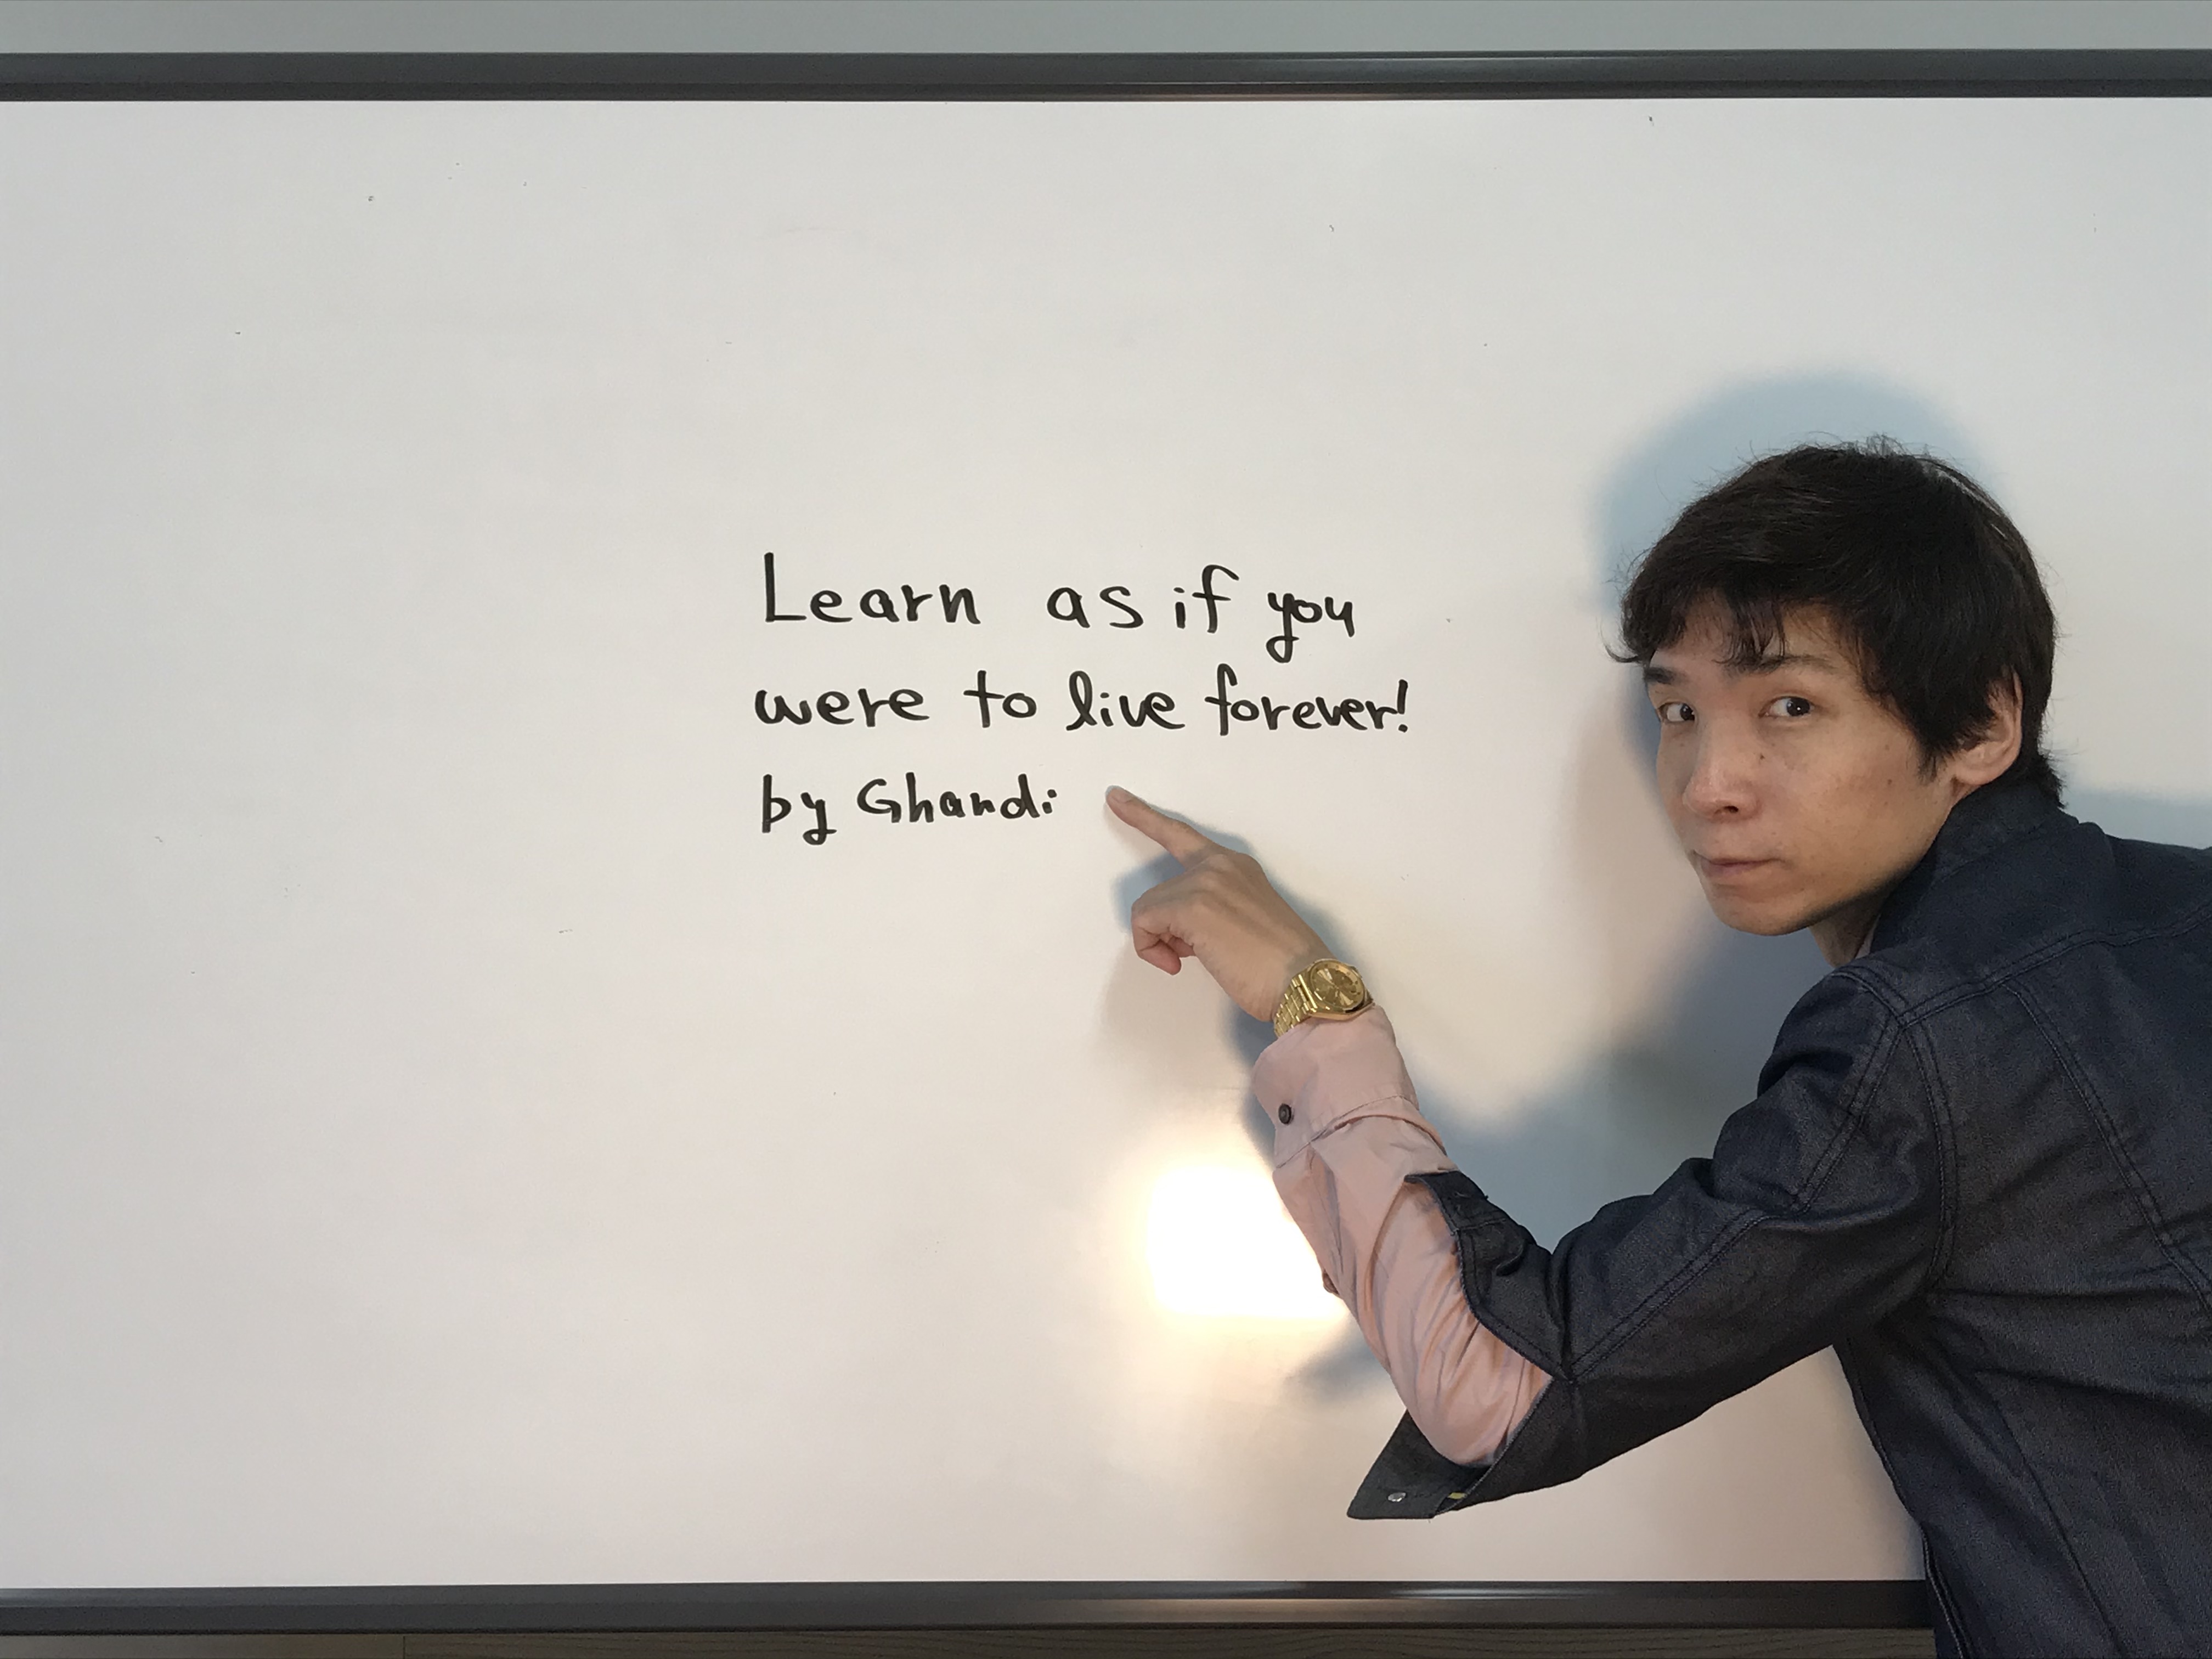 Learn as if you
were to live forever!
by Ghandi